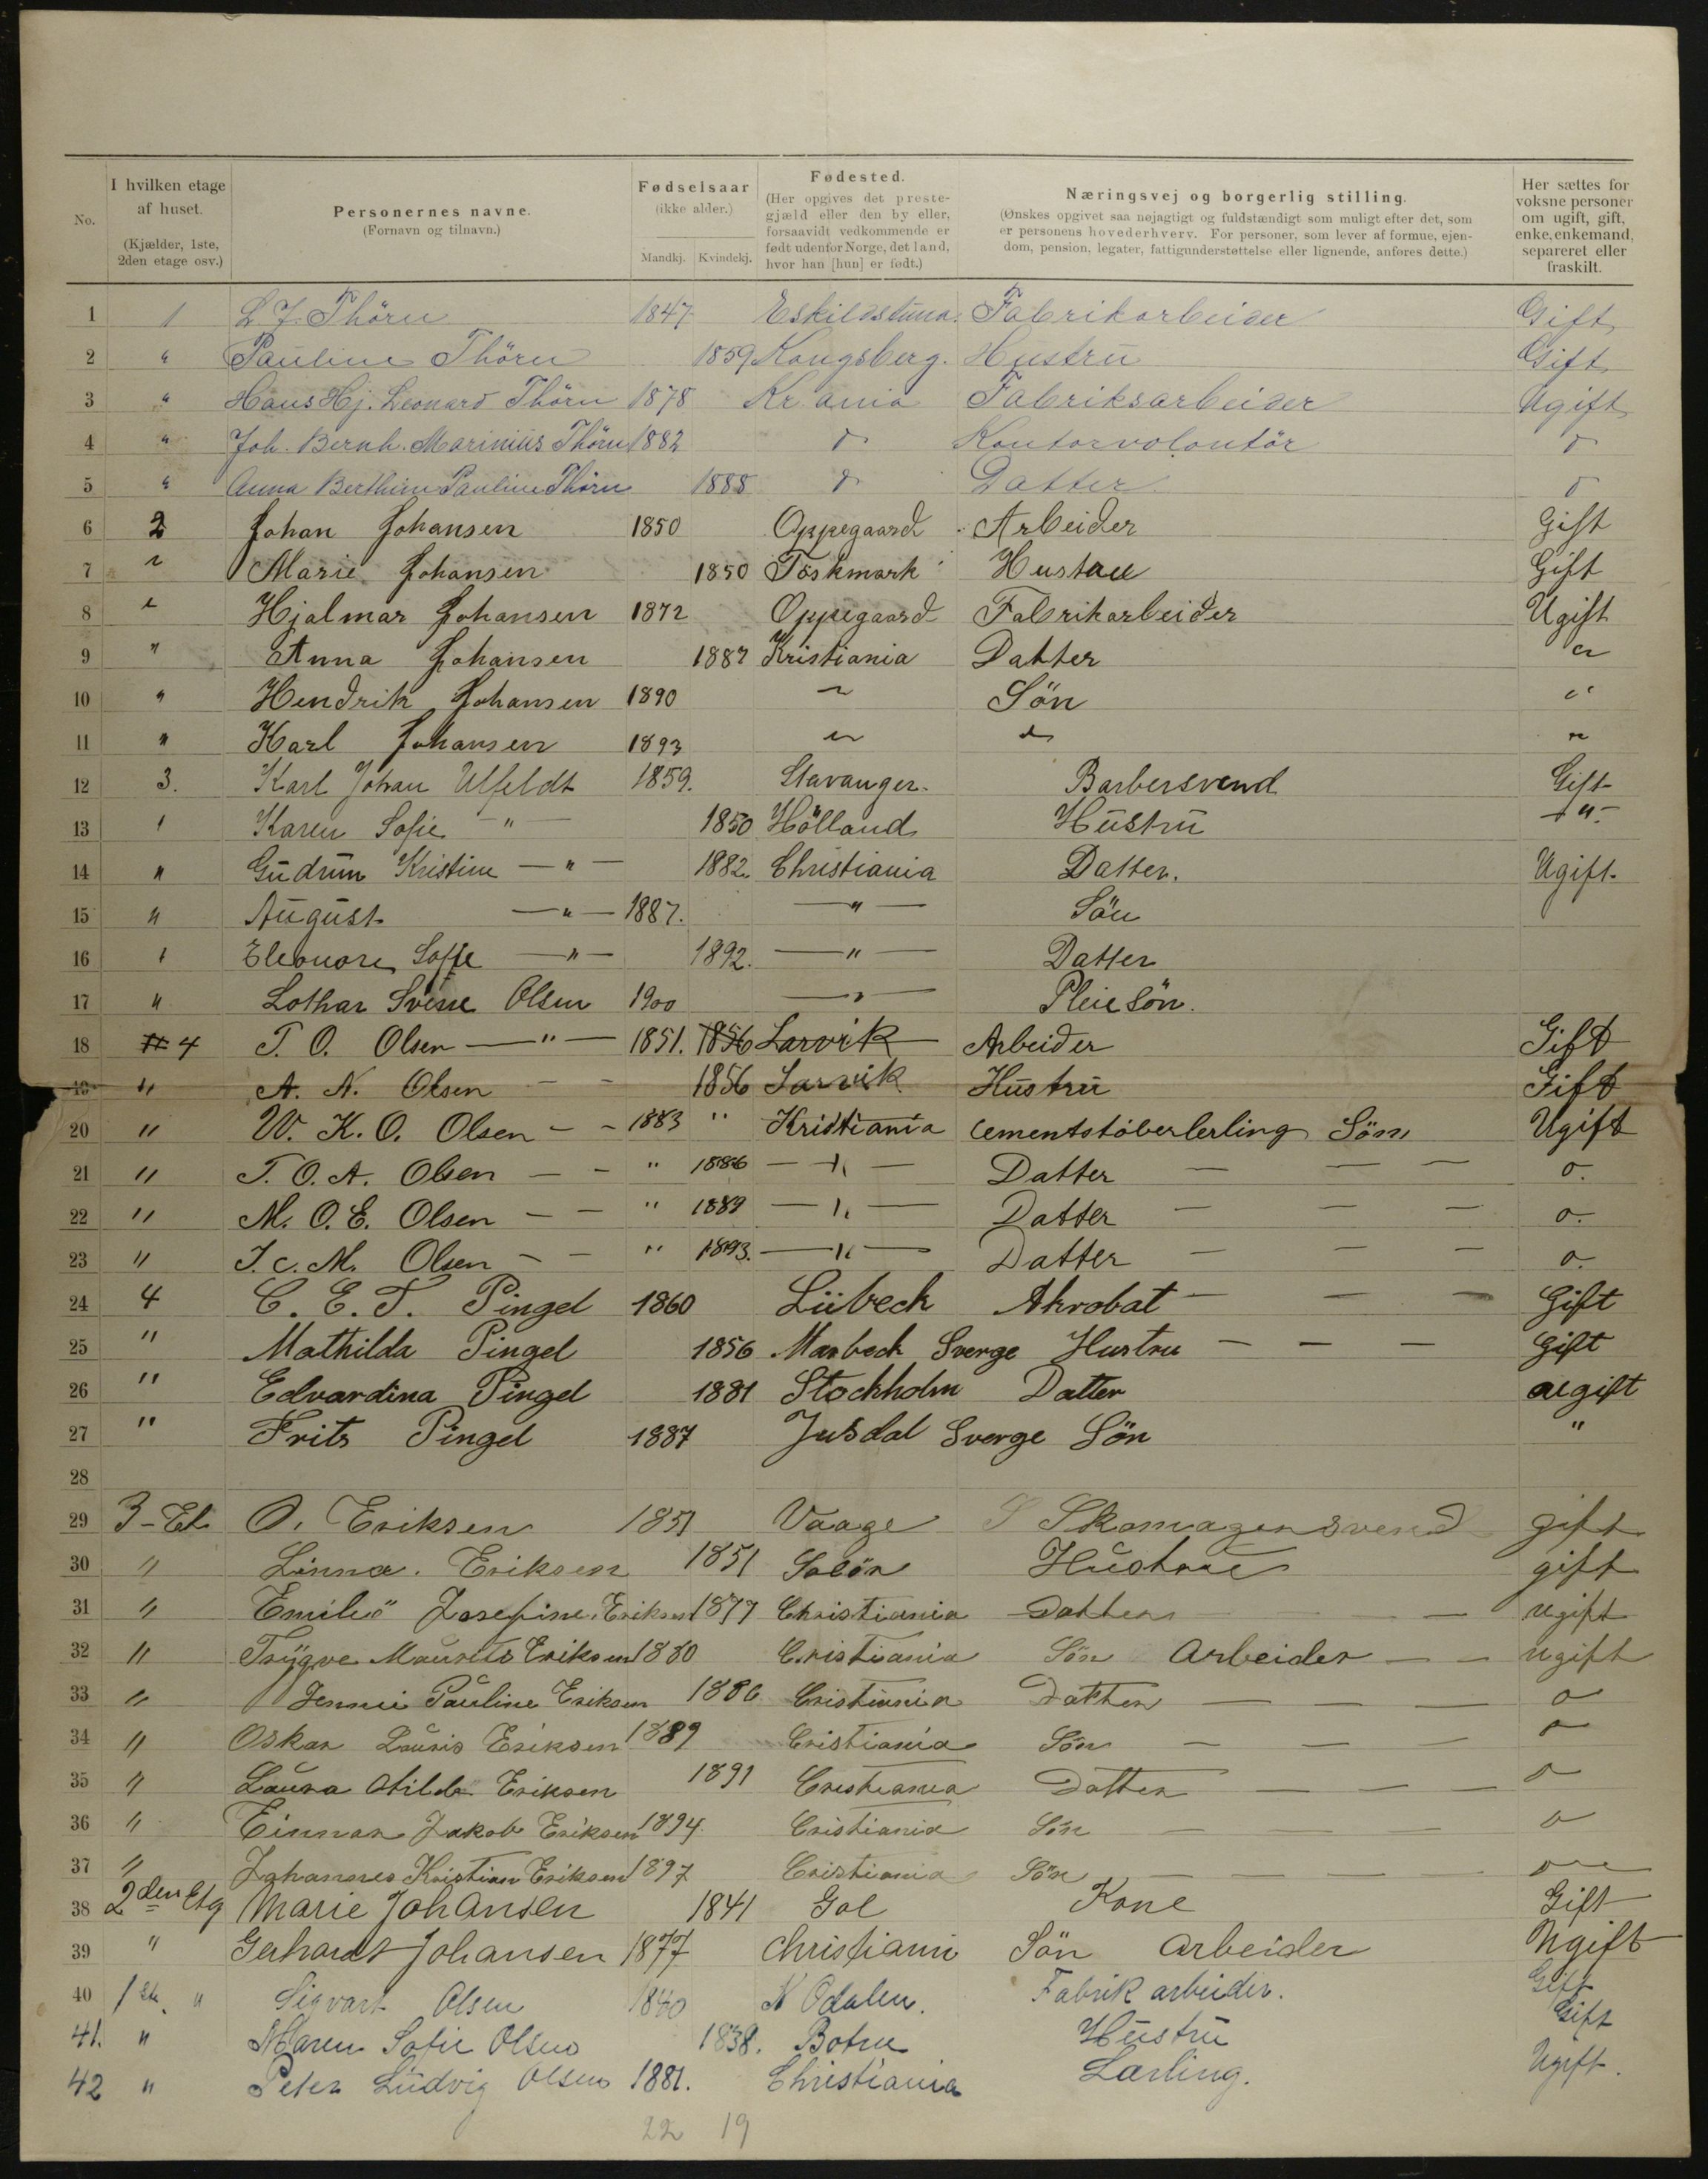 No. I hvilken etage af huset. (Kjælder, 1ste, 2den etage osv.) Personernes navne. (Fornavn og tilnavn.) Fødselsaar (ikke alder.) Mandkj. Kvindekj. Fødested. (Her opgives det prestegjæld eller den by eller, forsaavidt vedkommende er født udenfor Norge, det land, hvor han [hun] er født.) Næringsvej og borgerlig stilling. (Ønskes opgivet saa nøjagtigt og fuldstændigt som muligt efter det, som er personens hovederhverv. For personer, som lever af formue, ejendom, pension, legater, fattigunderstøttelse eller lignende, anføres dette.) Her sættes for voksne personer om ugift, gift, enke, enkemand, separeret eller fraskilt.
1 1 L J. Thörn 1847 Eskilostuna. Fabrikarbeider Gift
2 " Pauline Thörn 1859 Kongsberg. Hustru Gift
3 " Hans Hj. Leonard Thörn 1878 Kr ania Fabriksarbeider Ugift
4 " Joh. Bernh. Marinius Thörn 1882 d Kontorvolontör d
5 " Anna Berthine Pauline Thörn 1888 d Datter d
6 2 Johan Johansen 1850 Oppegaard Arbeider Gift
7 " Marie Johansen 1850 Töskmark Hustru Gift
8 " Hjalmar Johansen 1872 Oppegaard Fabrikarbeider Ugift
9 " Anna Johansen 1887 Kristiania Datter "
10 " Hendrik Johansen 1890 " Sön "
11 " Karl Johansen 1893 " " "
12 3. Karl Johan Ulfeldt 1859. Stavanger. Barbersvend Gift
13 " Karen Sofie — " — 1850 Hölland Hustru — " —
14 " Gudrun Kristine — " — 1882. Christiania Datter. Ugift.
15 " August — " — 1887. — " — Sön
16 " Eleonore Soffe — " — 1892. — " — Datter
17 " Lothar Sverre Olsen 1900 — " — Pleiesön.
18 4 T. O. Olsen — " — 1851. 1856 Larvik Arbeider Gift
19 " A. N. Olsen - - 1856 Larvik Hustru Gift
20 " W. K. O. Olsen - - 1883 " Kristiania Cementstöberlerling Sön Ugift
21 " T. O. A. Olsen — — " 1886 — " — Datter — — — o.
22 " M. O. E. Olsen — — " 1889 — " — Datter — — — o.
23 " J. C. M. Olsen — — " 1893. — " — Datter — — — o.
24 4 C. E. T. Pingel 1860 Lübeck Akrobat — — — Gift
25 " Mathilda Pingel 1856 Marbeck Sverge Hustru — — — Gift
26 " Edvardina Pingel 1881 Stockholm Datter ugift
27 " Frits Pingel 1887 Jusdal Sverge Sön "
28
29 3-Et. O. Eriksen 1851 Vaage S Skomagersvend gift
30 " Linna. Eriksen 1851 Solör Hustrue gift
31 " Josefine Eriksen 1877 Christiania Datter — ugift
32 " Trygve Mauritz Eriksen 1880 Cristiania Sön Arbeider — — ugift
33 " Jennie Pauline Eriksen 1886 Cristiania Datter — — — o
34 " Oskar Lauris Eriksen 1889 Cristiania Sön — — — o
35 " Laura Otilde Eriksen 1891 Cristiania Datter — — — o
36 " Einnar Jakob Eriksen 1894 Cristiania Sön — — — o
37 " Johannes Kristian Eriksen 1897 Cristiania Sön — — — — o
38 2den Etg Marie Johansen 1841 Gol Kone Gift
39 " Gerhardt Johansen 1877 Christiani Sön Arbeider Ugift
40 1 Et. " Sigvart Olsen 1840 N Odalen. Fabrik arbeider. Gift
41. " Maren Sofie Olsen 1838. Botne Hustru Gift
42 " Peter Ludvig Olsen 1881. Christiania Lærling. Ugift.
22 19